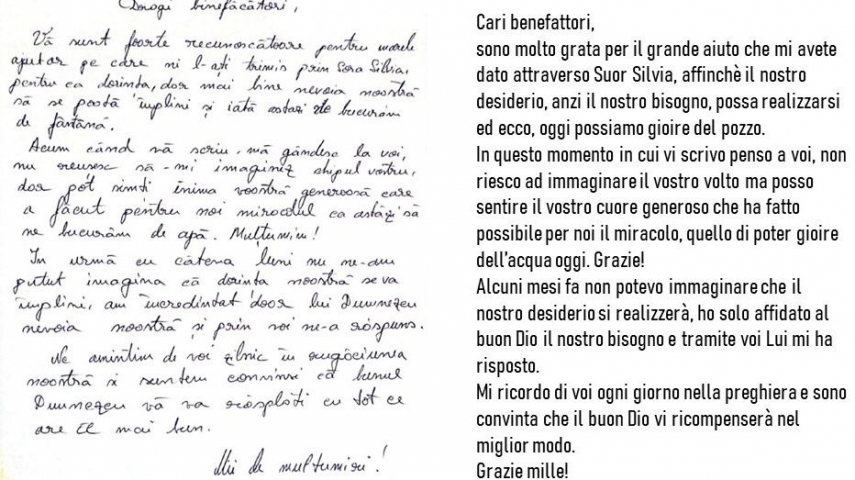 Dragi binefăcători,
Vă sunt foarte recunoscătoare pentru marele
ajutor pe care ni l-ați trimis prin Sora Silvia,
pentru ca dorința, dar mai bine nevoia noastră
să se poată împlini și iată astăzi ne bucurăm
de fântână.
Acum când vă scriu, mă gândesc la voi,
nu reusesc să-mi imaginez chipul vostru,
dar pot simți inima voastră generoasă care
a făcut pentru noi miracolul ca astăzi să
ne bucurăm de apă. Mulțumim!
In urmă cu câteva luni nu ne-am
putut imagina că dorinta noastră se va
împlini, am incredintat doar lui Dumnezeu
nevoia noastră și prin voi ne-a răspuns.
Ne amintim de voi zilnic în rugăciunea
noastră si suntem convinsi că bunul
Dumnezeu vă va răsplăti cu tot ce
are El mai bun.
Mii de multumiri!
Cari benefattori,
sono molto grata per il grande aiuto che mi avete
dato attraverso Suor Silvia, affinchè il nostro
desiderio, anzi il nostro bisogno, possa realizzarsi
ed ecco, oggi possiamo gioire del pozzo.
In questo momento in cui vi scrivo penso a voi, non
riesco ad immaginare il vostro volto ma posso
sentire il vostro cuore generoso che ha fatto
possibile per noi il miracolo, quello di poter gioire
dell'acqua oggi. Grazie!
Alcuni mesi fa non potevo immaginare che il
nostro desiderio si realizzerà, ho solo affidato al
buon Dio il nostro bisogno e tramite voi Lui mi ha
risposto.
Mi ricordo di voi ogni giorno nella preghiera e sono
convinta che il buon Dio vi ricompenserà nel
miglior modo.
Grazie mille!